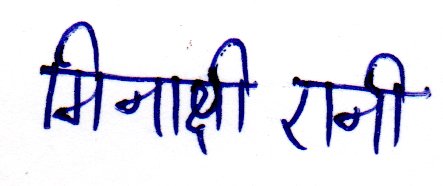 मिनाक्षी रानी